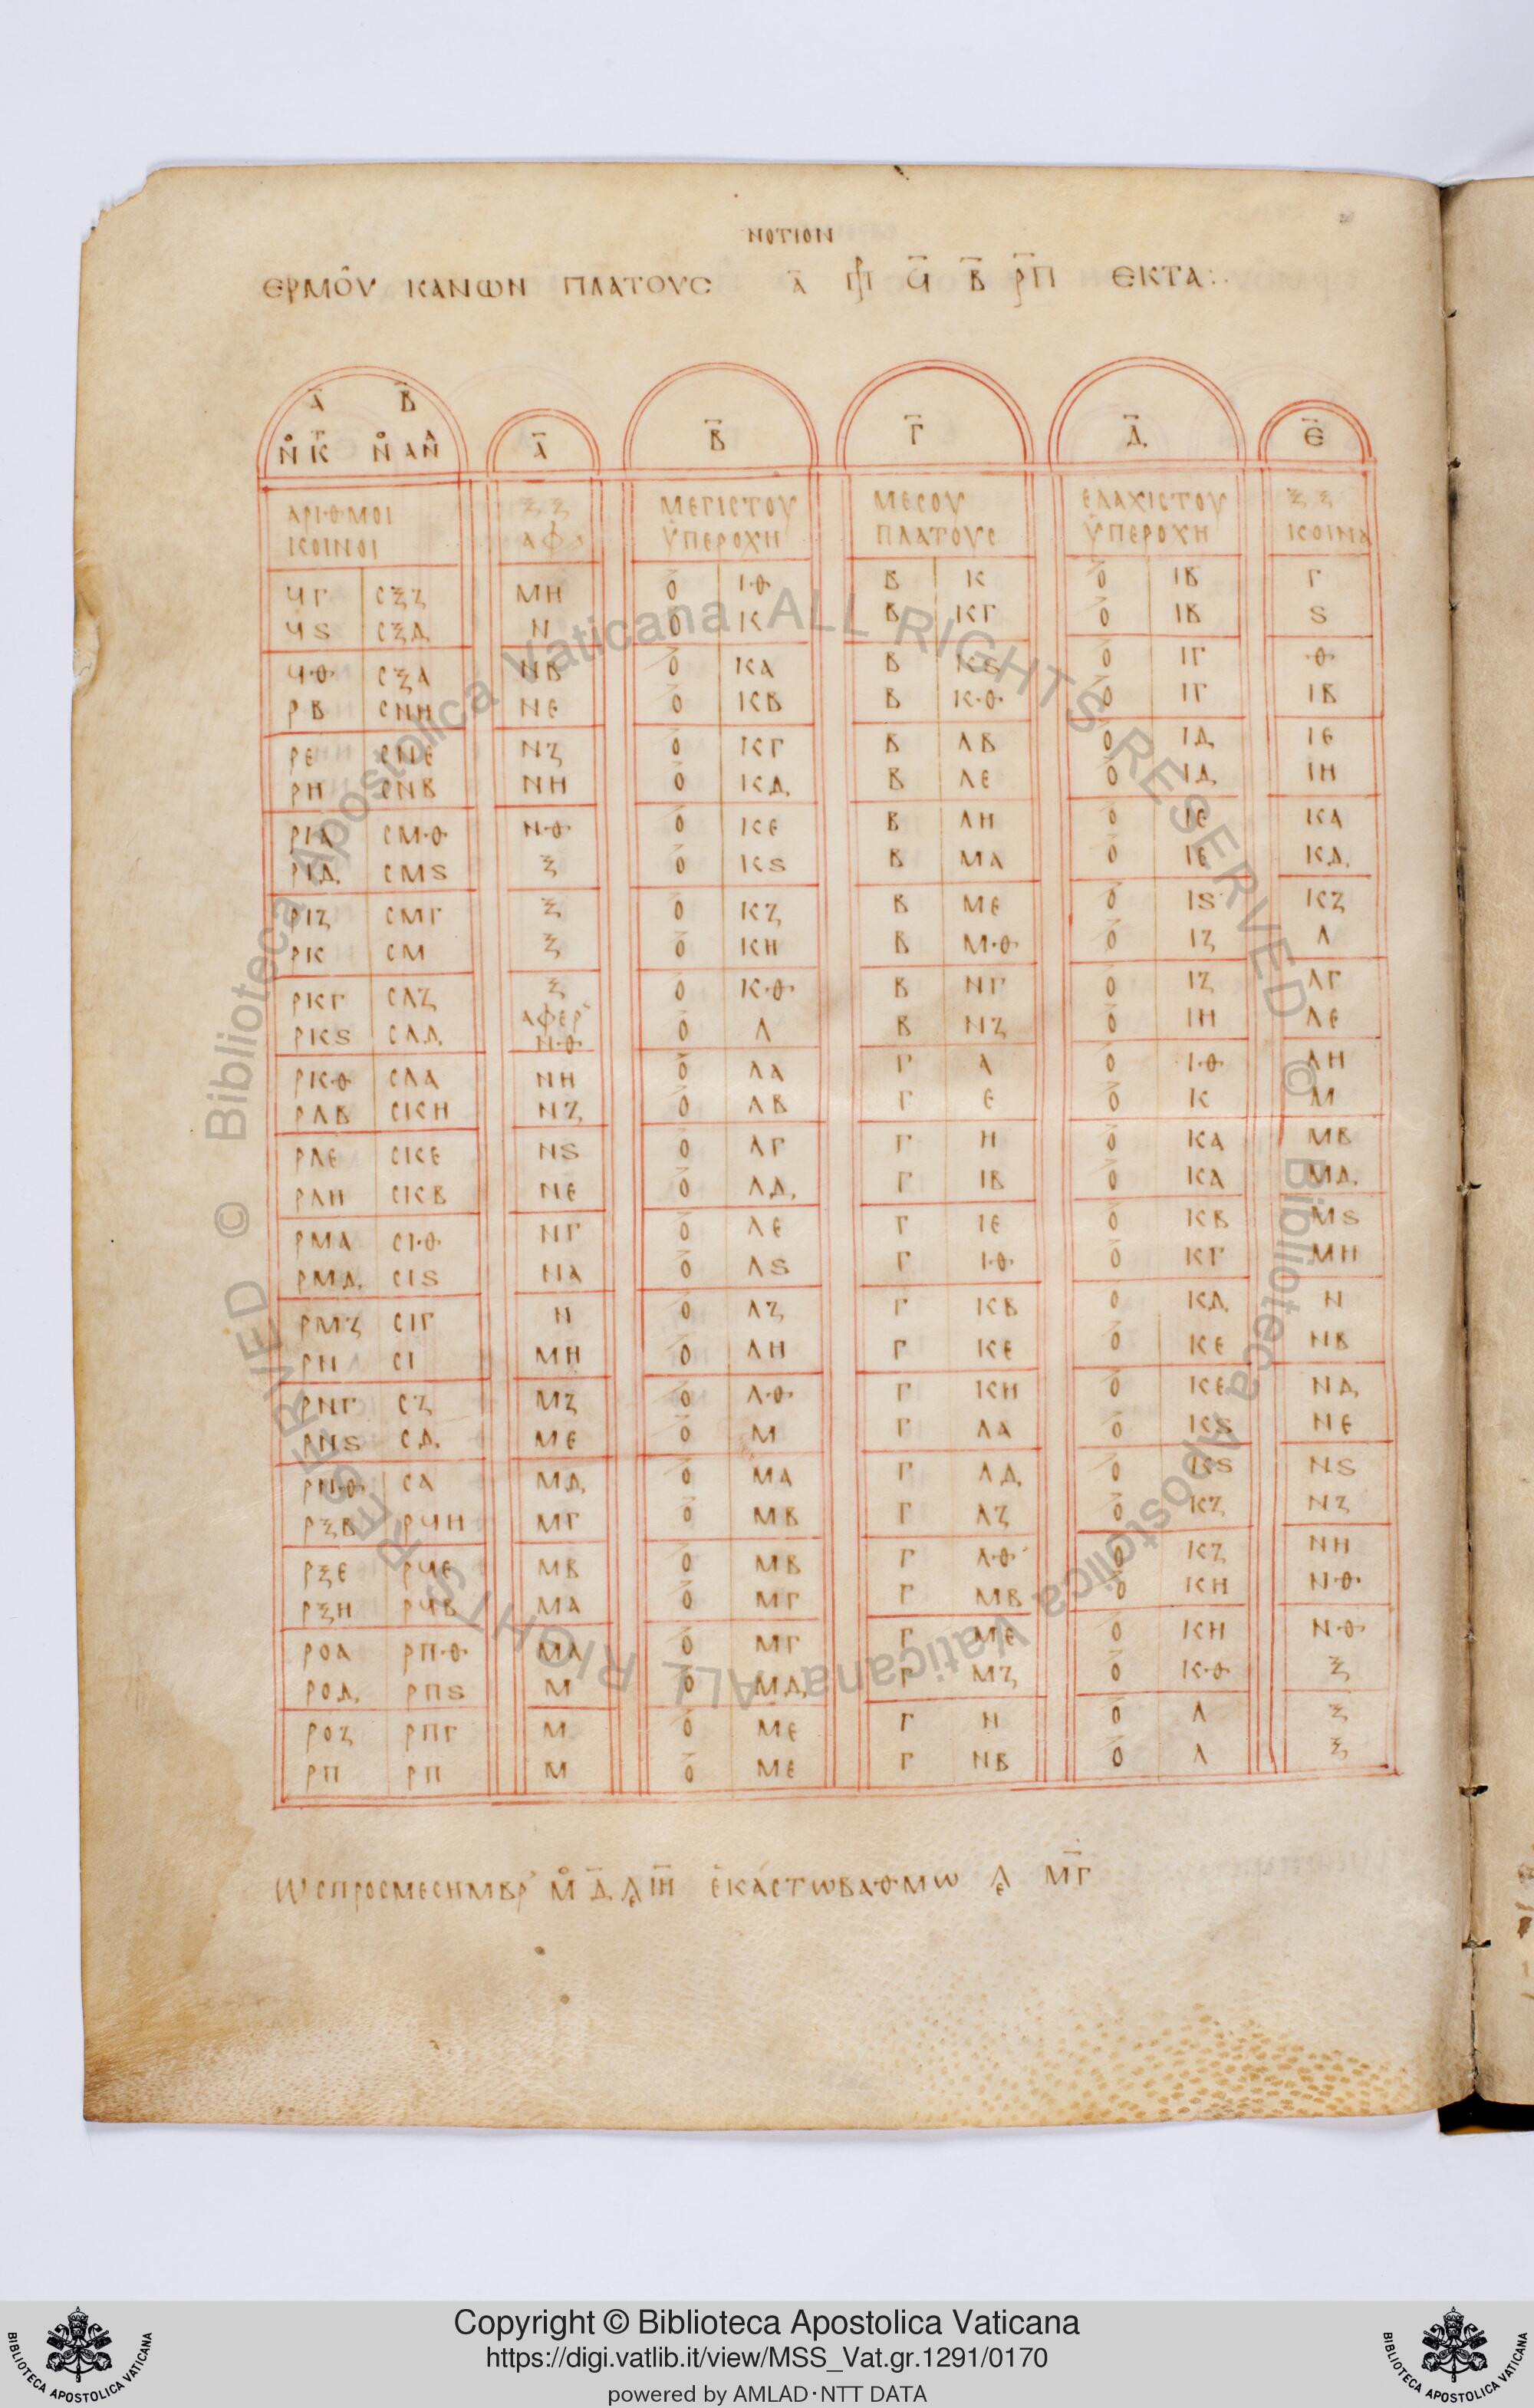 ΝΟΤΙΟΝ
ΕΡΜΟΥ ΚΑΝΩΝ ΠΛΑΤΟΥϹ Α Β ΡΠ ΕΚΤΑ:
Α Β
Ν Κ Ν ΑΝ Α Β Γ Δ Ε
ΑΡΙΘΜΟΙ ΞΞ ΜΕΓΙϹΤΟΥ ΜΕϹΟΥ ΕΛΑΧΙϹΤΟΥ ΞΞ
ΚΟΙΝΟΙ ΑΦ ΥΠΕΡΟΧΗ ΠΛΑΤΟΥϹ ΥΠΕΡΟΧΗ ΚΟΙΝΑ
ϞΓ ϹΞΖ ΜΗ Ο ΙΘ Β Κ Ο ΙΒ Γ
Ϟϛ ϹΞΔ Ν Ο Κ Β ΚΓ Ο ΙΒ ϛ
ϞΘ ϹΞΑ ΝΒ Ο ΚΑ Β Κϛ Ο ΙΓ Θ
ΡΒ ϹΝΗ ΝΕ Ο ΚΒ Β ΚΘ Ο ΙΓ ΙΒ
ΡΕ ϹΝΕ ΝΖ Ο ΚΓ Β ΛΒ Ο ΙΔ ΙΕ
ΡΗ ϹΝΒ ΝΗ Ο ΚΔ Β ΛΕ Ο ΙΔ ΙΗ
ΡΙΑ ϹΜΘ ΝΘ Ο ΚΕ Β ΛΗ Ο ΙΕ ΚΑ
ΡΙΔ ϹΜϛ Ξ Ο Κϛ Β ΜΑ Ο ΙΕ ΚΔ
ΡΙΖ ϹΜΓ Ξ Ο ΚΖ Β ΜΕ Ο Ιϛ ΚΖ
ΡΚ ϹΜ Ξ Ο ΚΗ Β ΜΘ Ο ΙΖ Λ
ΡΚΓ ϹΛΖ Ξ Ο ΚΘ Β ΝΓ Ο ΙΖ ΛΓ
ΑΦΕΡ
ΡΚϛ ϹΛΔ ΝΘ Ο Λ Β ΝΖ Ο ΙΗ ΛΕ
ΡΚΘ ϹΛΑ ΝΗ Ο ΛΑ Γ Α Ο ΙΘ ΛΗ
ΡΛΒ ϹΚΗ ΝΖ Ο ΛΒ Γ Ε Ο Κ Μ
ΡΛΕ ϹΚΕ Νϛ Ο ΛΓ Γ Η Ο ΚΑ ΜΒ
ΡΛΗ ϹΚΒ ΝΕ Ο ΛΔ Γ ΙΒ Ο ΚΑ ΜΔ
ΡΜΑ ϹΙΘ ΝΓ Ο ΛΕ Γ ΙΕ Ο ΚΒ Μϛ
ΡΜΔ ϹΙϛ ΝΑ Ο Λϛ Γ ΙΘ Ο ΚΓ ΜΗ
ΡΜΖ ϹΙΓ Ν Ο ΛΖ Γ ΚΒ Ο ΚΔ Ν
ΡΝ ϹΙ ΜΗ Ο ΛΗ Γ ΚΕ Ο ΚΕ ΝΒ
ΡΝΓ ϹΖ ΜΖ Ο ΛΘ Γ ΚΗ Ο ΚΕ ΝΔ
ΡΝϛ ϹΔ ΜΕ Ο Μ Γ ΛΑ Ο Κϛ ΝΕ
ΡΝΘ ϹΑ ΜΔ Ο ΜΑ Γ ΛΔ Ο Κϛ Νϛ
ΡΞΒ ΡϞΗ ΜΓ Ο ΜΒ Γ ΛΖ Ο ΚΖ ΝΖ
ΡΞΕ ΡϞΕ ΜΒ Ο ΜΒ Γ ΛΘ Ο ΚΖ ΝΗ
ΡΞΗ ΡϞΒ ΜΑ Ο ΜΓ Γ ΜΒ Ο ΚΗ ΝΘ
ΡΟΑ ΡΠΘ ΜΑ Ο ΜΓ Γ ΜΕ Ο ΚΗ ΝΘ
ΡΟΔ ΡΠϛ Μ Ο ΜΔ Γ ΜΖ Ο ΚΘ Ξ
ΡΟΖ ΡΠΓ Μ Ο ΜΕ Γ Ν Ο Λ Ξ
ΡΠ ΡΠ Μ Ο ΜΕ Γ ΝΒ Ο Λ Ξ
ΩϹΠΡΟϹΜΕϹΗΜΒΡ ΕΚΑϹΤΩΒΑΘΜΩ ΜΓ
© Biblioteca Apostolica Vaticana ALL RIGHTS RESERVED © Biblioteca Apostolica Vaticana ALL RIGHTS RESERVED
Copyright © Biblioteca Apostolica Vaticana
https://digi.vatlib.it/view/MSS_Vat.gr.1291/0170
powered by AMLAD·NTT DATA
BIBLIOTECA APOSTOLICA VATICANA
BIBLIOTECA APOSTOLICA VATICANA